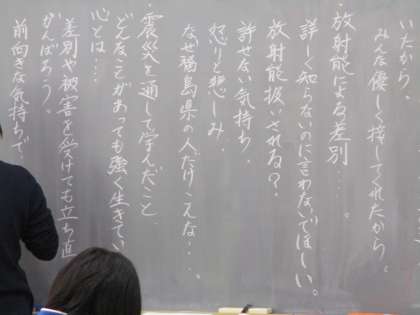 いたから。
みんな優しく接してくれたから。
・放射能による差別‥‥。
詳しく知らないのに言わないでほしい。
放射能扱いされる？
許せない気持ち。
怒りと悲しみ
なぜ福島県の人だけこんな‥‥、
・震災を通して学んだこと
どんなことがあっても強く生きてい
心とは‥‥
差別や被害を受けても立ち直
がんばろう。
前向きな気持ちで